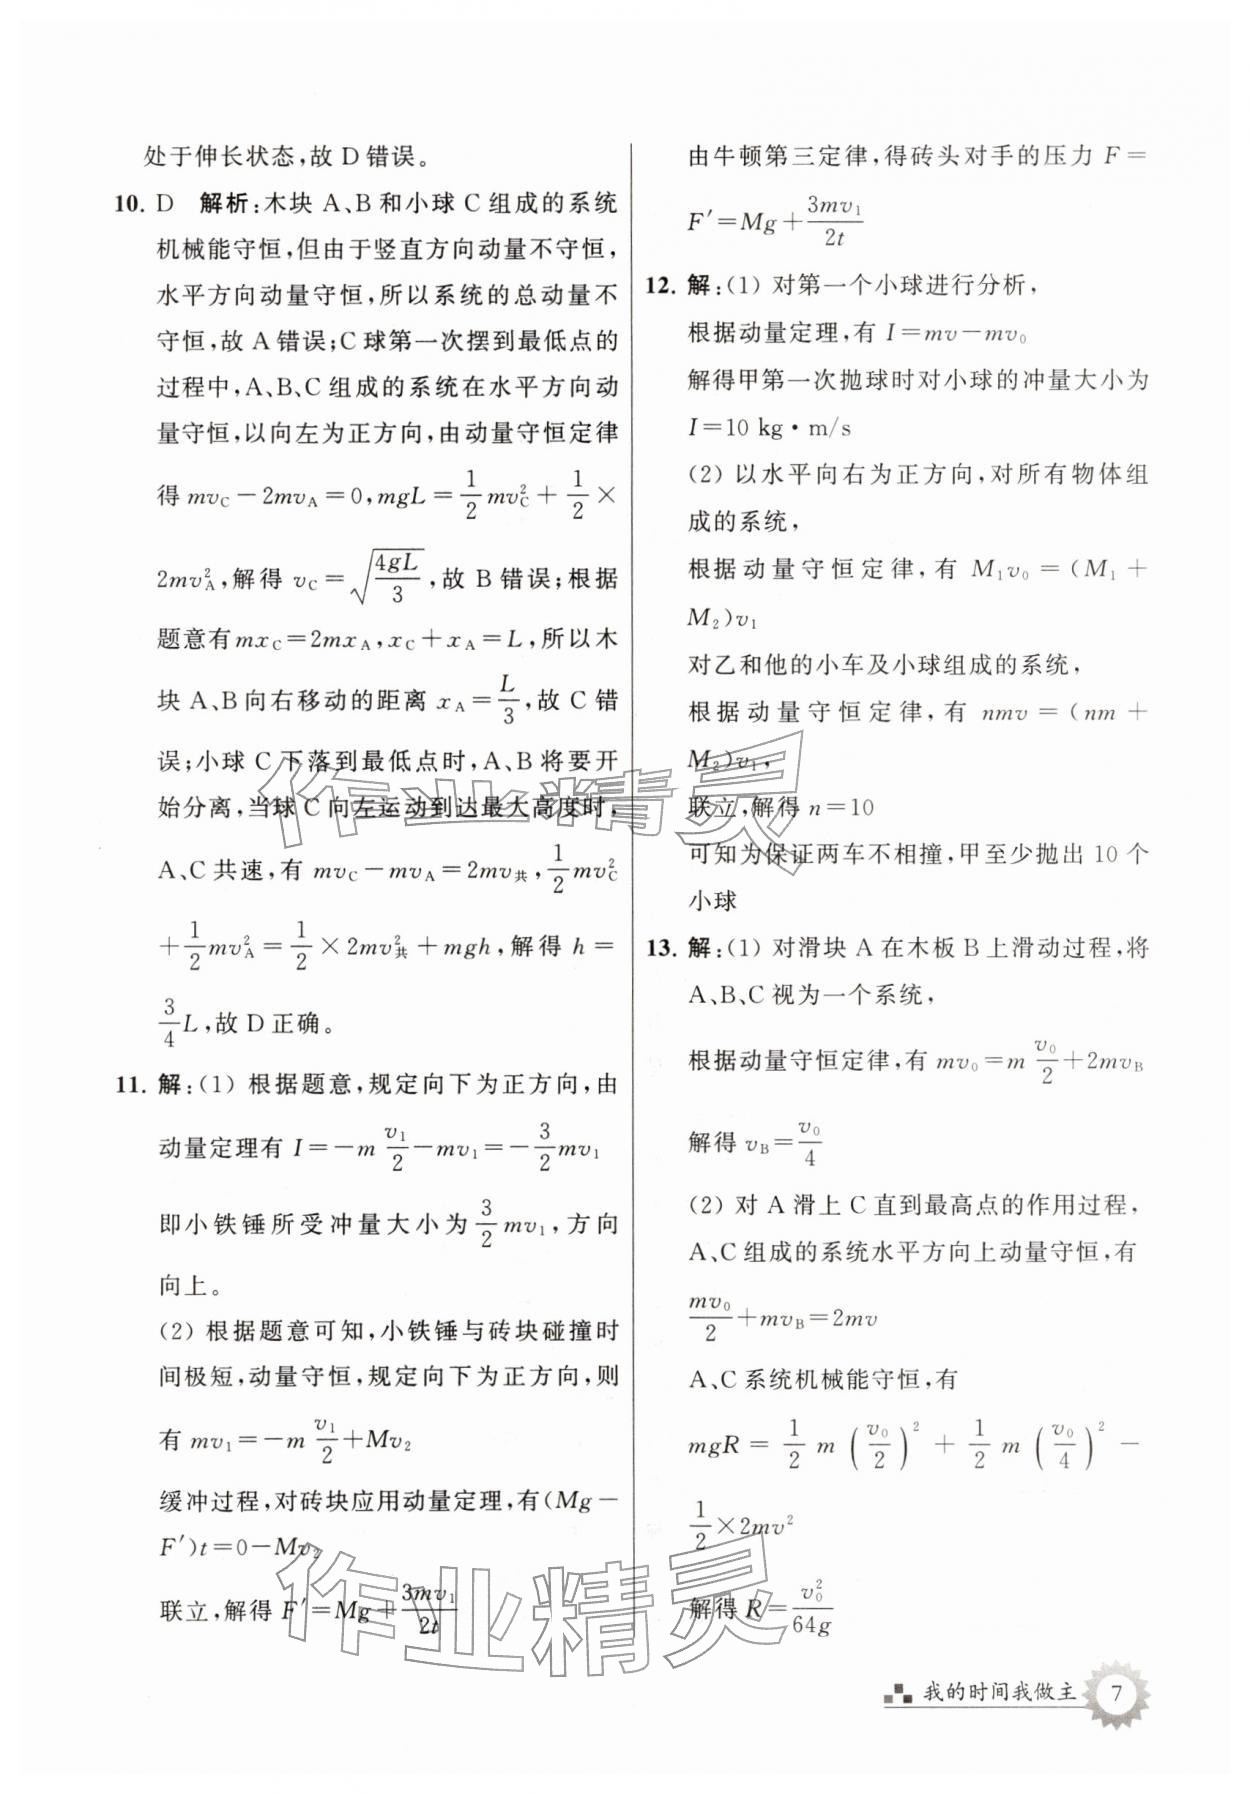 处于伸长状态,故 D 错误。
10. D 解析:木块 A、B 和小球 C 组成的系统
机械能守恒,但由于竖直方向动量不守恒,
水平方向动量守恒,所以系统的总动量不
守恒,故 A 错误;C 球第一次摆到最低点的
过程中,A、B、C 组成的系统在水平方向动
量守恒,以向左为正方向,由动量守恒定律
得 $mv_C-2mv_A=0$,$mgL=\frac{1}{2}mv_C^2+\frac{1}{2}\times$
$2mv_A^2$,解得 $v_C=\sqrt{\frac{4gL}{3}}$,故 B 错误;根据
题意有 $mx_C=2mx_A$,$x_C+x_A=L$,所以木
块 A、B 向右移动的距离 $x_A=\frac{L}{3}$,故 C 错
误;小球 C 下落到最低点时,A、B 将要开
始分离,当球 C 向左运动到达最大高度时,
A、C 共速,有 $mv_C-mv_A=2mv_共$,$\frac{1}{2}mv_C^2$
$+\frac{1}{2}mv_A^2=\frac{1}{2}\times2mv_共^2+mgh$,解得 $h=$
$\frac{3}{4}L$,故 D 正确。
11. 解:(1) 根据题意,规定向下为正方向,由
动量定理有 $I=-m\frac{v_1}{2}-mv_1=-\frac{3}{2}mv_1$
即小铁锤所受冲量大小为 $\frac{3}{2}mv_1$,方向
向上。
(2) 根据题意可知,小铁锤与砖块碰撞时
间极短,动量守恒,规定向下为正方向,则
有 $mv_1=-m\frac{v_1}{2}+Mv_2$
缓冲过程,对砖块应用动量定理,有$(Mg-$
$F')t=0-Mv_2$
联立,解得 $F'=Mg+\frac{3mv_1}{2t}$
由牛顿第三定律,得砖头对手的压力 $F=$
$F'=Mg+\frac{3mv_1}{2t}$
12. 解:(1) 对第一个小球进行分析,
根据动量定理,有 $I=mv-mv_0$
解得甲第一次抛球时对小球的冲量大小为
$I=10$ kg·m/s
(2) 以水平向右为正方向,对所有物体组
成的系统,
根据动量守恒定律,有 $M_1v_0=(M_1+$
$M_2)v_1$
对乙和他的小车及小球组成的系统,
根据动量守恒定律,有 $nmv=(nm+$
$M_2)v_1$,
联立,解得 $n=10$
可知为保证两车不相撞,甲至少抛出 10 个
小球
13. 解:(1) 对滑块 A 在木板 B 上滑动过程,将
A、B、C 视为一个系统,
根据动量守恒定律,有 $mv_0=m\frac{v_0}{2}+2mv_B$
解得 $v_B=\frac{v_0}{4}$
(2) 对 A 滑上 C 直到最高点的作用过程,
A、C 组成的系统水平方向上动量守恒,有
$\frac{mv_0}{2}+mv_B=2mv$
A、C 系统机械能守恒,有
$mgR=\frac{1}{2}m\left(\frac{v_0}{2}\right)^2+\frac{1}{2}m\left(\frac{v_0}{4}\right)^2-$
$\frac{1}{2}\times2mv^2$
解得 $R=\frac{v_0^2}{64g}$
我的时间我做主 7
作业精灵
作业精灵